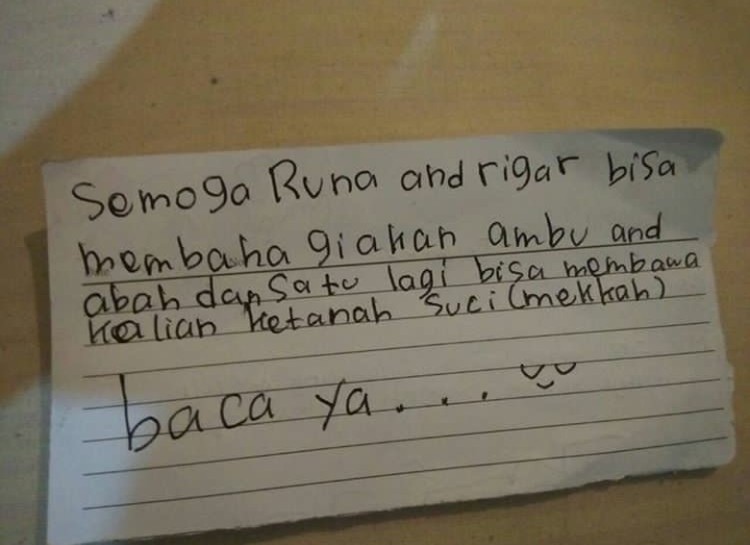 Semoga Runa and rigar bisa
membaha giakan ambu and
abah dan satu lagi bisa membawa
kalian ketanah Suci (mekkah)
baca ya. . . .